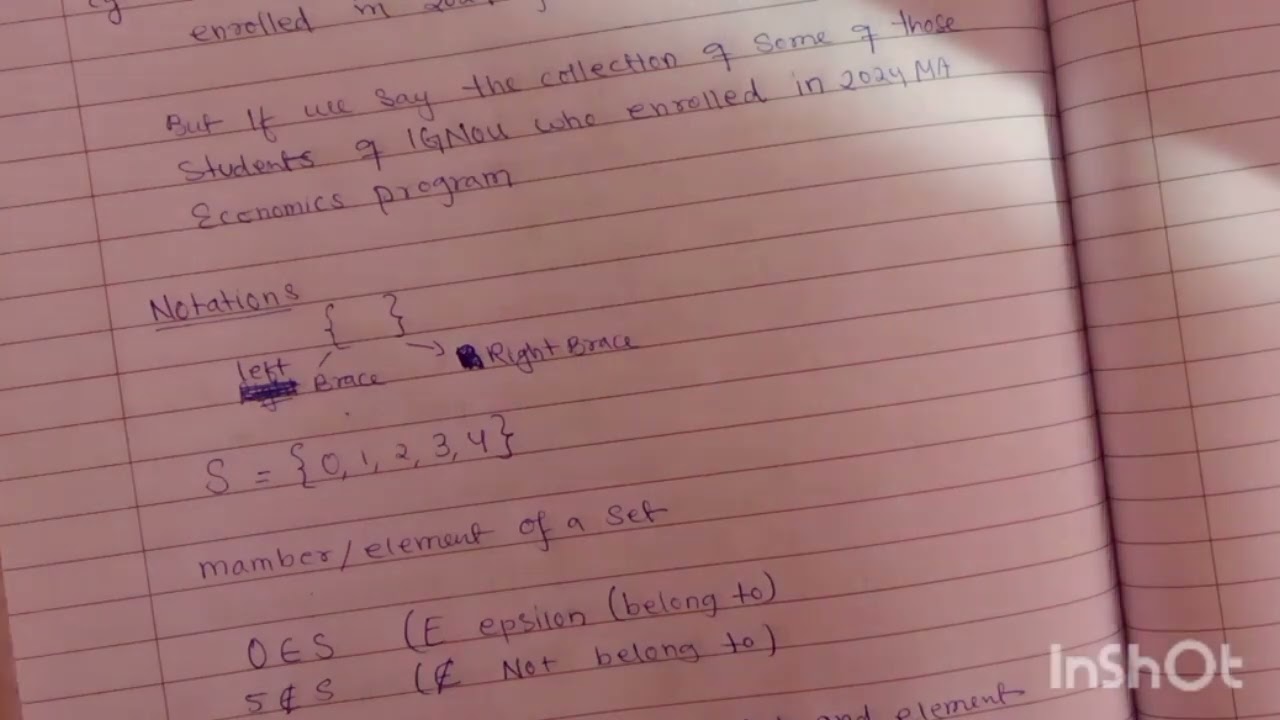 enrolled in
But If we say the collection of Some of those
Students of IGNOU who enrolled in 2024 MA
Economics program
Notations
{ }
left Brace → Right Brace
S = {0, 1, 2, 3, 4}
mamber/element of a set
0 ∈ S (E epsilon (belong to)
5 ∉ S (∉ Not belong to)
and element
InShOt